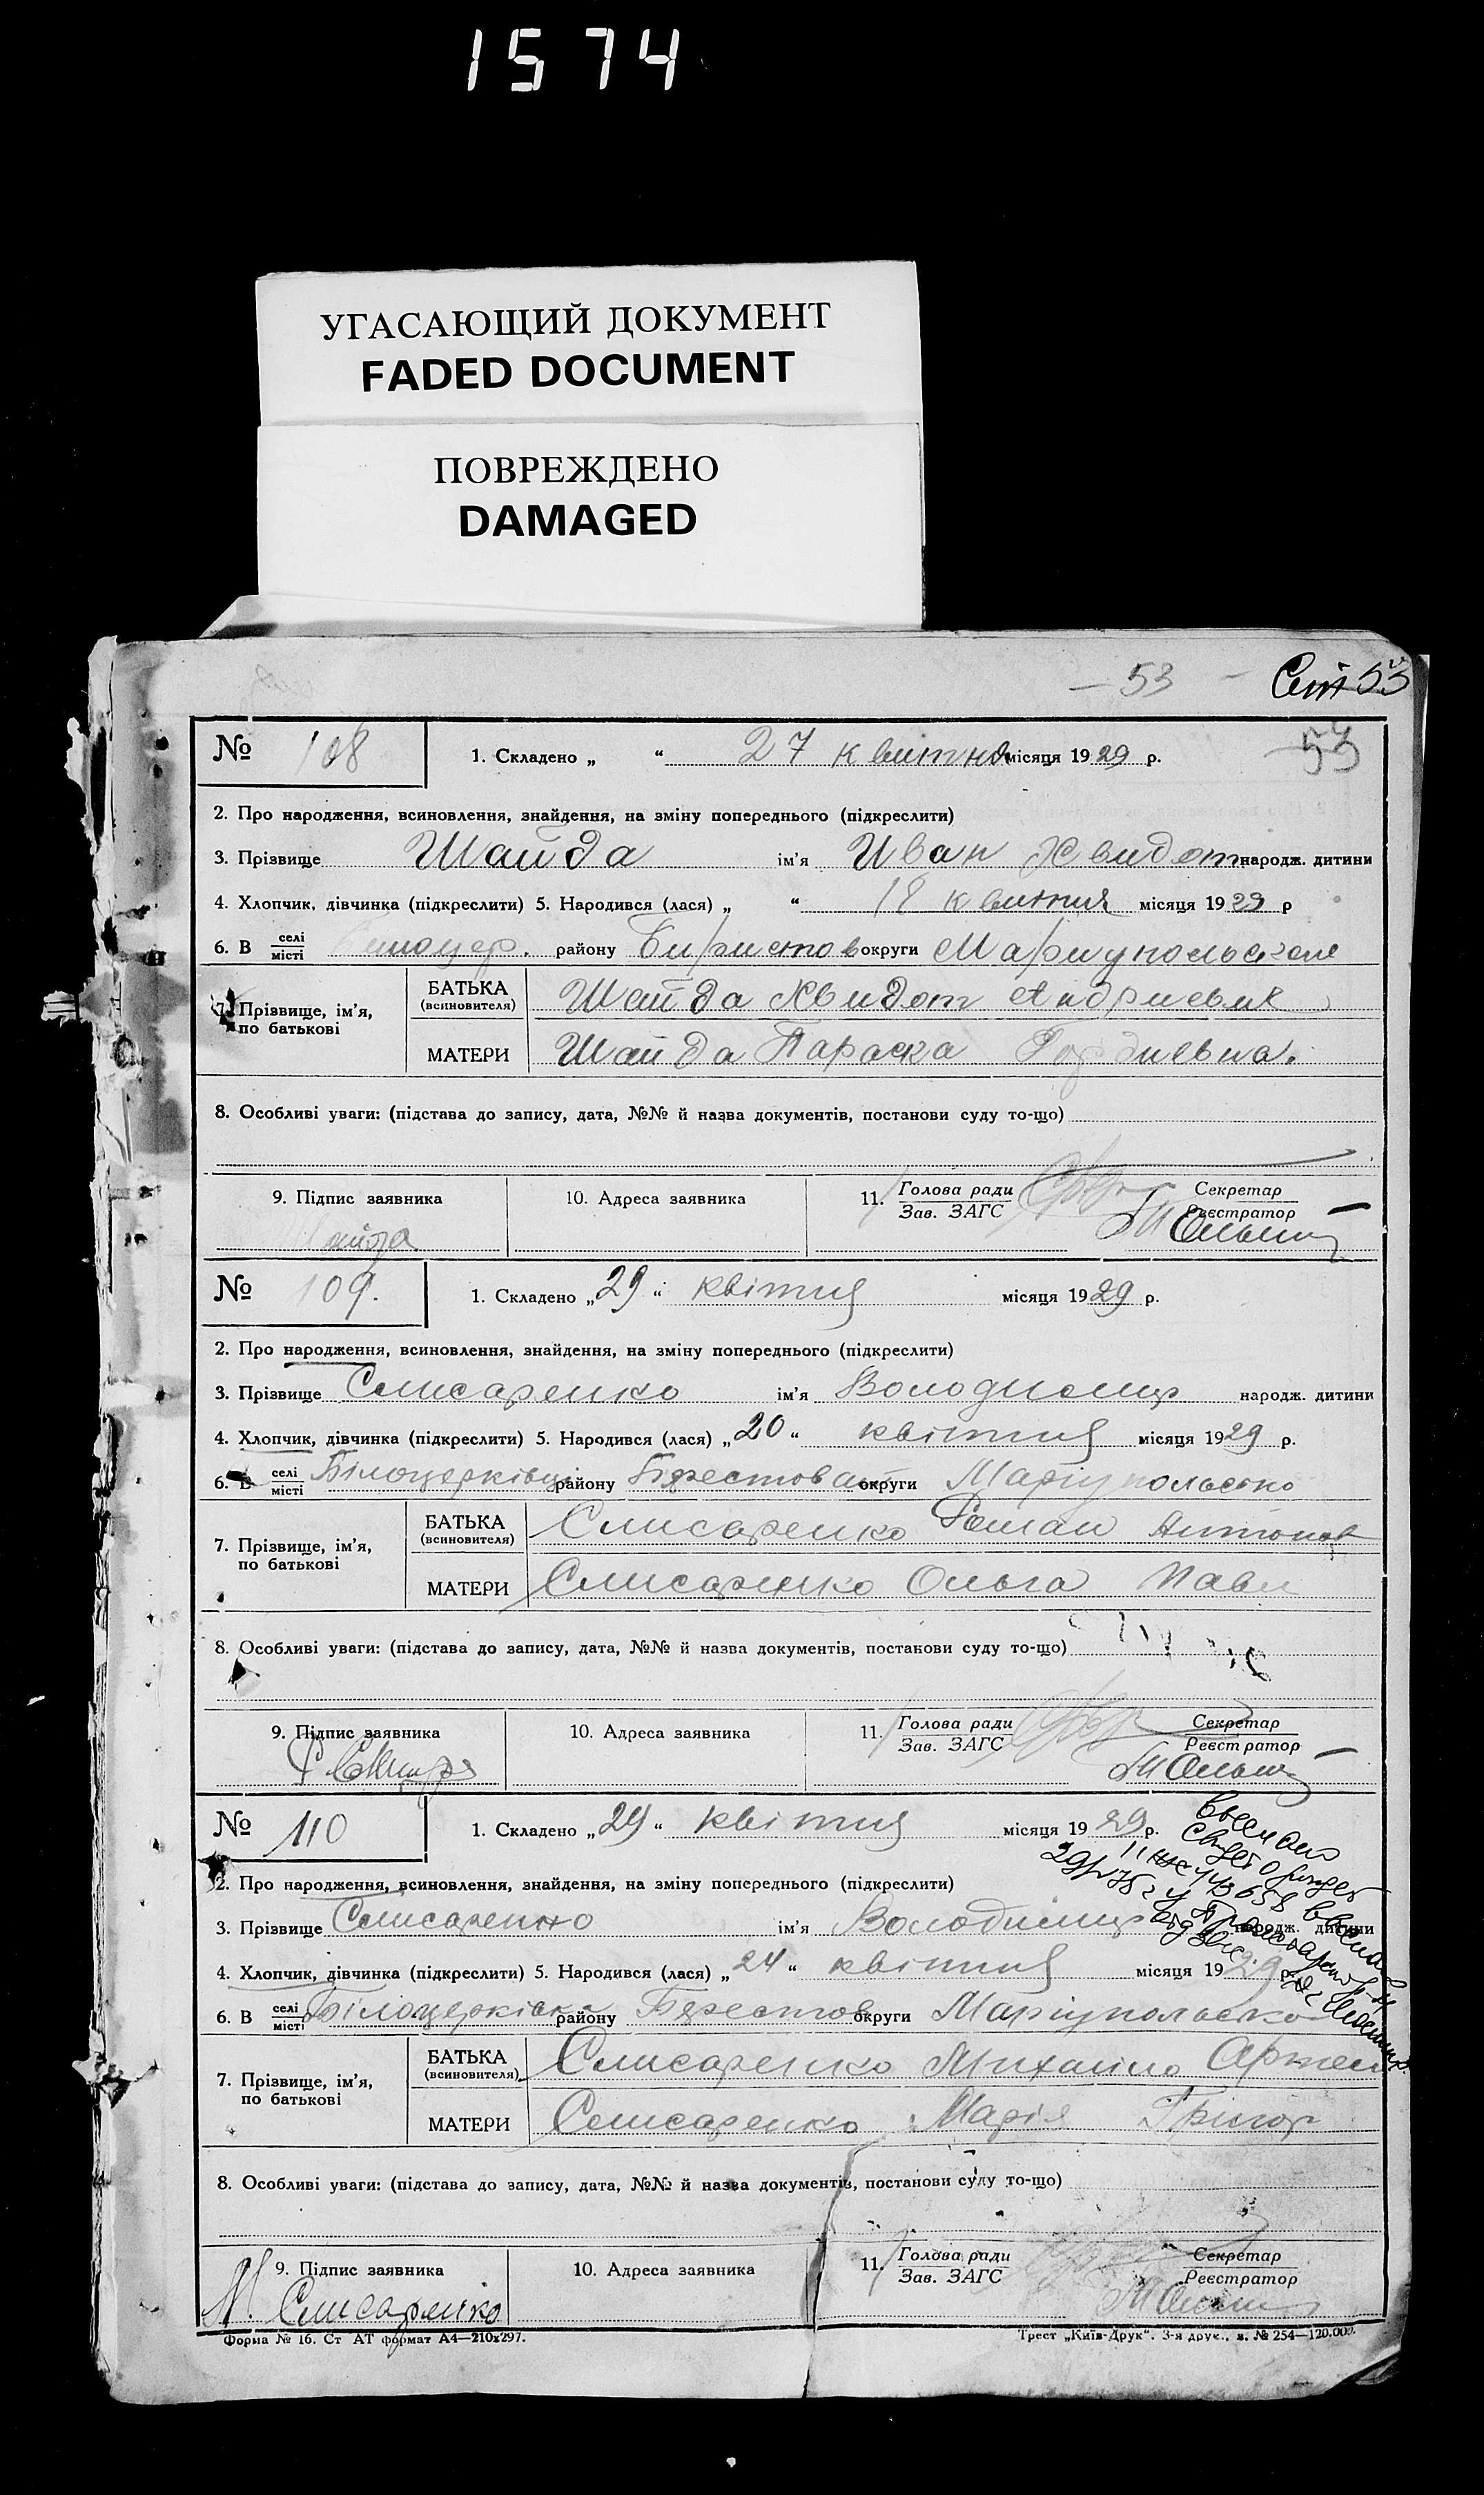 1574
УГАСАЮЩИЙ ДОКУМЕНТ
FADED DOCUMENT
ПОВРЕЖДЕНО
DAMAGED
— 53 —
53
53
№ 108
1. Складено „ “ 27 квитня місяця 1929 р.
2. Про народження, всиновлення, знайдення, на зміну попереднього (підкреслити)
3. Прізвище Шайда ім'я Иван Хвидот народж. дитини
4. Хлопчик, дівчинка (підкреслити) 5. Народився (лася) „ “ 18 квитня місяця 1929 р
6. В селі місті району округи Мариупольской
7. Прізвище, ім'я, по батькові
БАТЬКА (всиновителя) Шайда Хвидот Андриевич
МАТЕРИ Шайда Параска
8. Особливі уваги: (підстава до запису, дата, №№ й назва документів, постанови суду то-що)
9. Підпис заявника 10. Адреса заявника 11. Голова ради Зав. ЗАГС Секретар Реєстратор
Шайда
№ 109.
1. Складено „29“ квітня місяця 1929 р.
2. Про народження, всиновлення, знайдення, на зміну попереднього (підкреслити)
3. Прізвище Слисаренко ім'я Володимир народж. дитини
4. Хлопчик, дівчинка (підкреслити) 5. Народився (лася) „20“ квітня місяця 1929 р.
6. В селі місті Білоцерківці району округи Маріупольсько
7. Прізвище, ім'я, по батькові
БАТЬКА (всиновителя) Слисаренко Роман Антонов
МАТЕРИ Слисаренко Ольга Павл
8. Особливі уваги: (підстава до запису, дата, №№ й назва документів, постанови суду то-що)
9. Підпис заявника 10. Адреса заявника 11. Голова ради Зав. ЗАГС Секретар Реєстратор
№ 110
1. Складено „29“ квітня місяця 1929 р.
2. Про народження, всиновлення, знайдення, на зміну попереднього (підкреслити)
3. Прізвище Слисаренко ім'я Володимир народж. дитини
4. Хлопчик, дівчинка (підкреслити) 5. Народився (лася) „24“ квітня місяця 1929 р.
6. В селі місті Білоцерківка району Берестов округи Маріупольсько
7. Прізвище, ім'я, по батькові
БАТЬКА (всиновителя) Слисаренко Михайло Артем
МАТЕРИ Слисаренко Марія Григор
8. Особливі уваги: (підстава до запису, дата, №№ й назва документів, постанови суду то-що)
9. Підпис заявника 10. Адреса заявника 11. Голова ради Зав. ЗАГС Секретар Реєстратор
М. Слисаренко
Форма № 16. Ст АТ формат А4—210х297.
Трест „Київ-Друк“. 3-я друк., з. № 254—120.000.